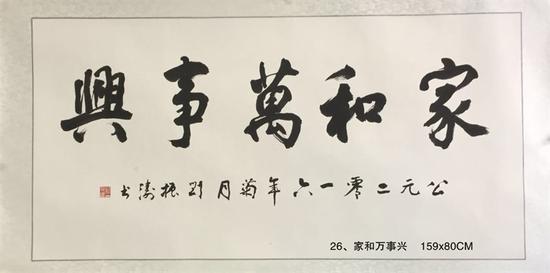 家和萬事興
公元二零一六年菊月野振濤书
26、家和万事兴 159x80CM